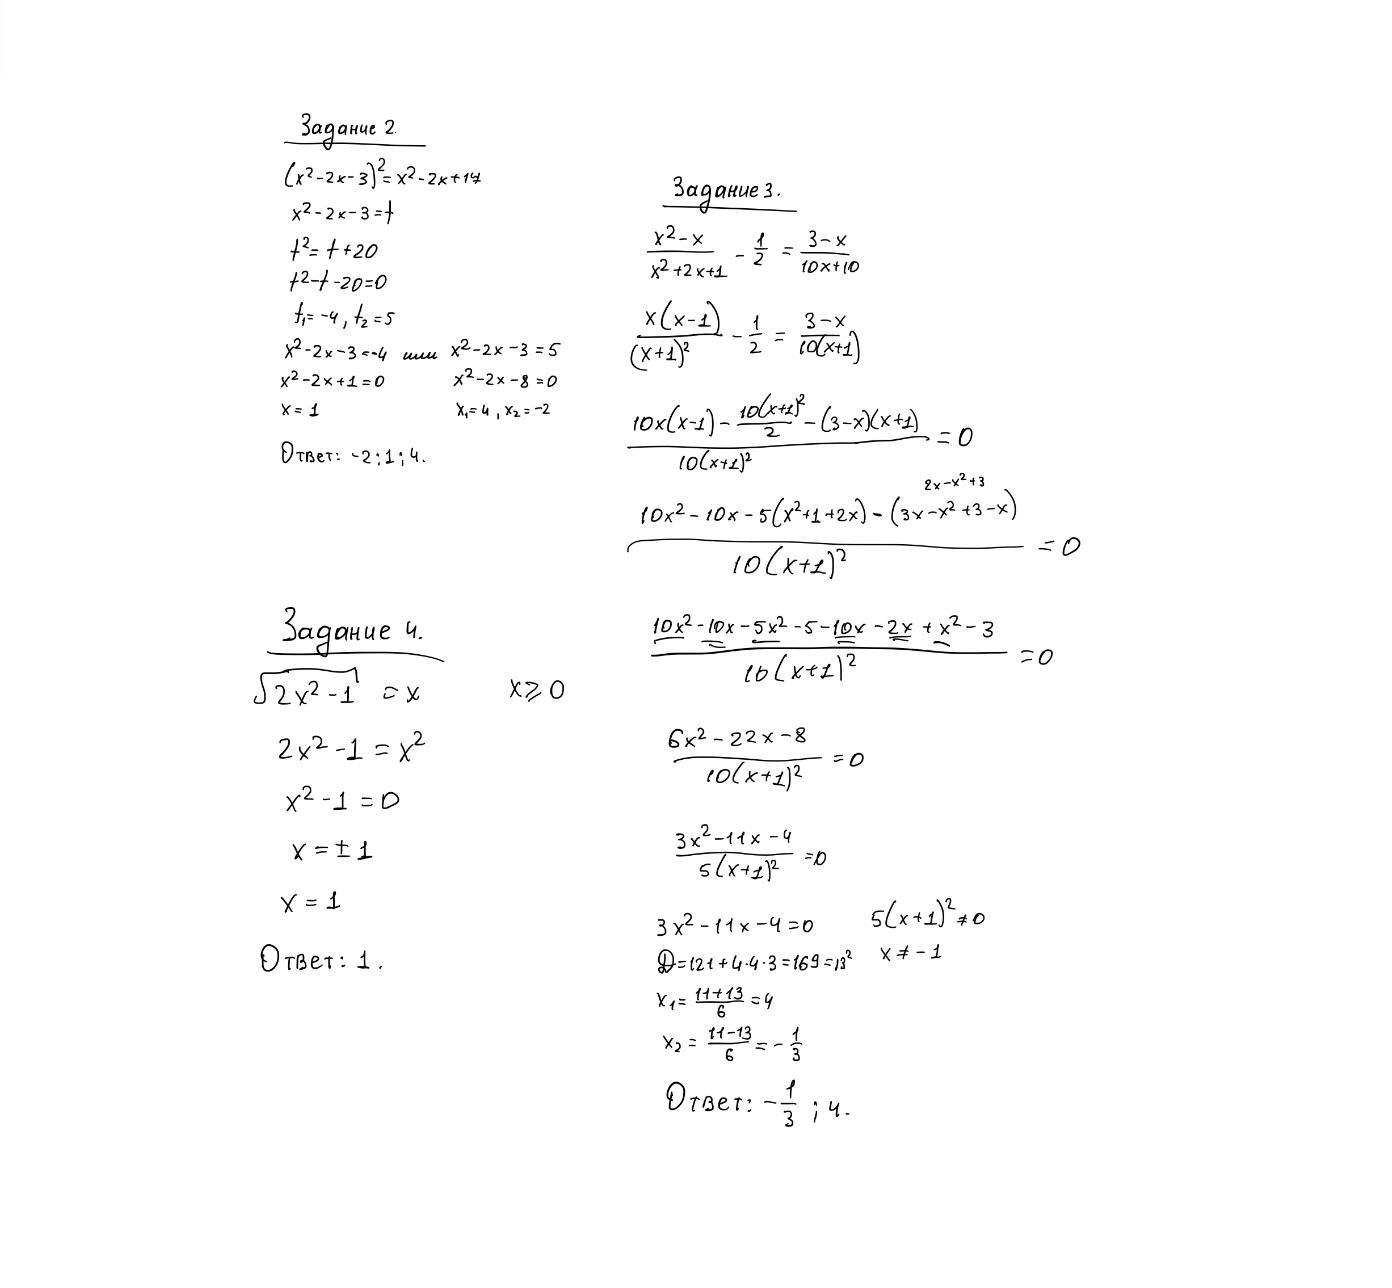 Задание 2.
(x²-2x-3)²=x²-2x+17
x²-2x-3=t
t²=t+20
t²-t-20=0
t₁=-4, t₂=5
x²-2x-3=-4 или x²-2x-3=5
x²-2x+1=0 x²-2x-8=0
x=1 x₁=4, x₂=-2
Ответ: -2;1;4.
Задание 3.
(x²-x)/(x²+2x+1) - 1/2 = (3-x)/(10x+10)
x(x-1)/(x+1)² - 1/2 = (3-x)/(10(x+1))
(10x(x-1) - 10(x+1)²/2 - (3-x)(x+1))/(10(x+1)²) = 0
2x-x²+3
(10x²-10x-5(x²+1+2x)-(3x-x²+3-x))/(10(x+1)²) = 0
(10x²-10x-5x²-5-10x-2x+x²-3)/(10(x+1)²) = 0
(6x²-22x-8)/(10(x+1)²) = 0
(3x²-11x-4)/(5(x+1)²) = 0
3x²-11x-4=0 5(x+1)²≠0
D=121+4·4·3=169=13² x≠-1
x₁=(11+13)/6=4
x₂=(11-13)/6=-1/3
Ответ: -1/3; 4.
Задание 4.
√(2x²-1) = x x⩾0
2x²-1=x²
x²-1=0
x=±1
x=1
Ответ: 1.